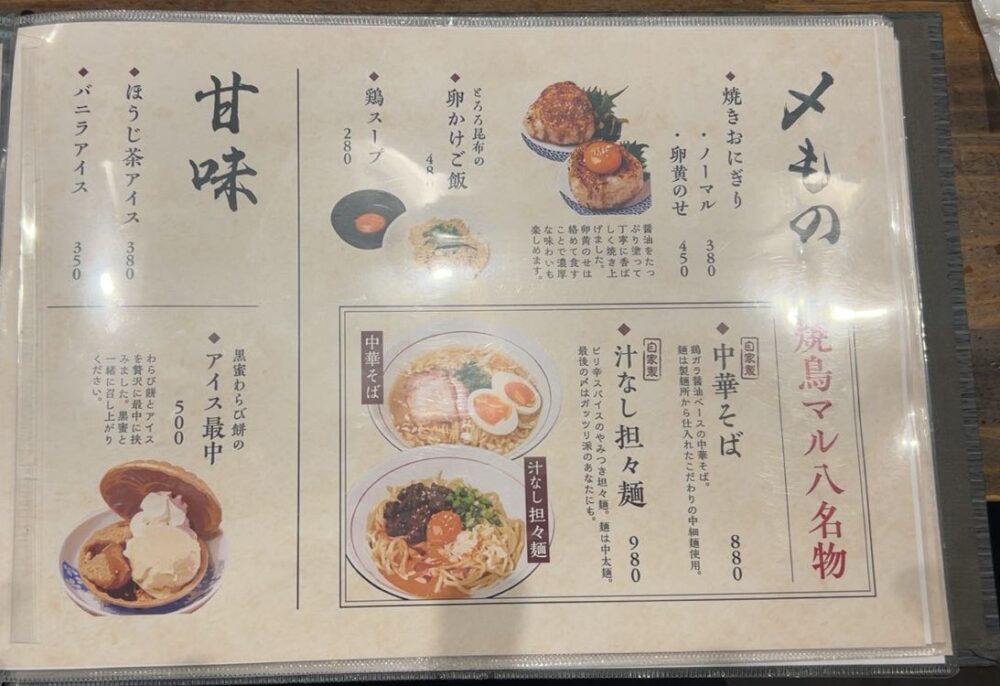 〆もの
焼鳥マル八名物
◆焼きおにぎり
・ノーマル 380
・卵黄のせ 450
醤油をたっ
ぷり塗って
丁寧に香ば
しく焼き上
げました。
卵黄のせは
絡めて食す
ことで濃厚
な味わいも
楽しめます。
とろろ昆布の
◆卵かけご飯
◆鶏スープ 280
自家製
◆中華そば 880
鶏ガラ醤油ベースの中華そば。
麺は製麺所から仕入れたこだわりの中細麺使用。
自家製
◆汁なし担々麺 980
ピリ辛スパイスのやみつき担々麺。麺は中太麺。
最後の〆はガッツリ派のあなたにも。
中華そば
汁なし担々麺
甘味
◆ほうじ茶アイス 380
◆バニラアイス 350
黒蜜わらび餅の
◆アイス最中
500
わらび餅とアイス
を贅沢に最中に挟
みました。黒蜜と
一緒に召し上がり
ください。